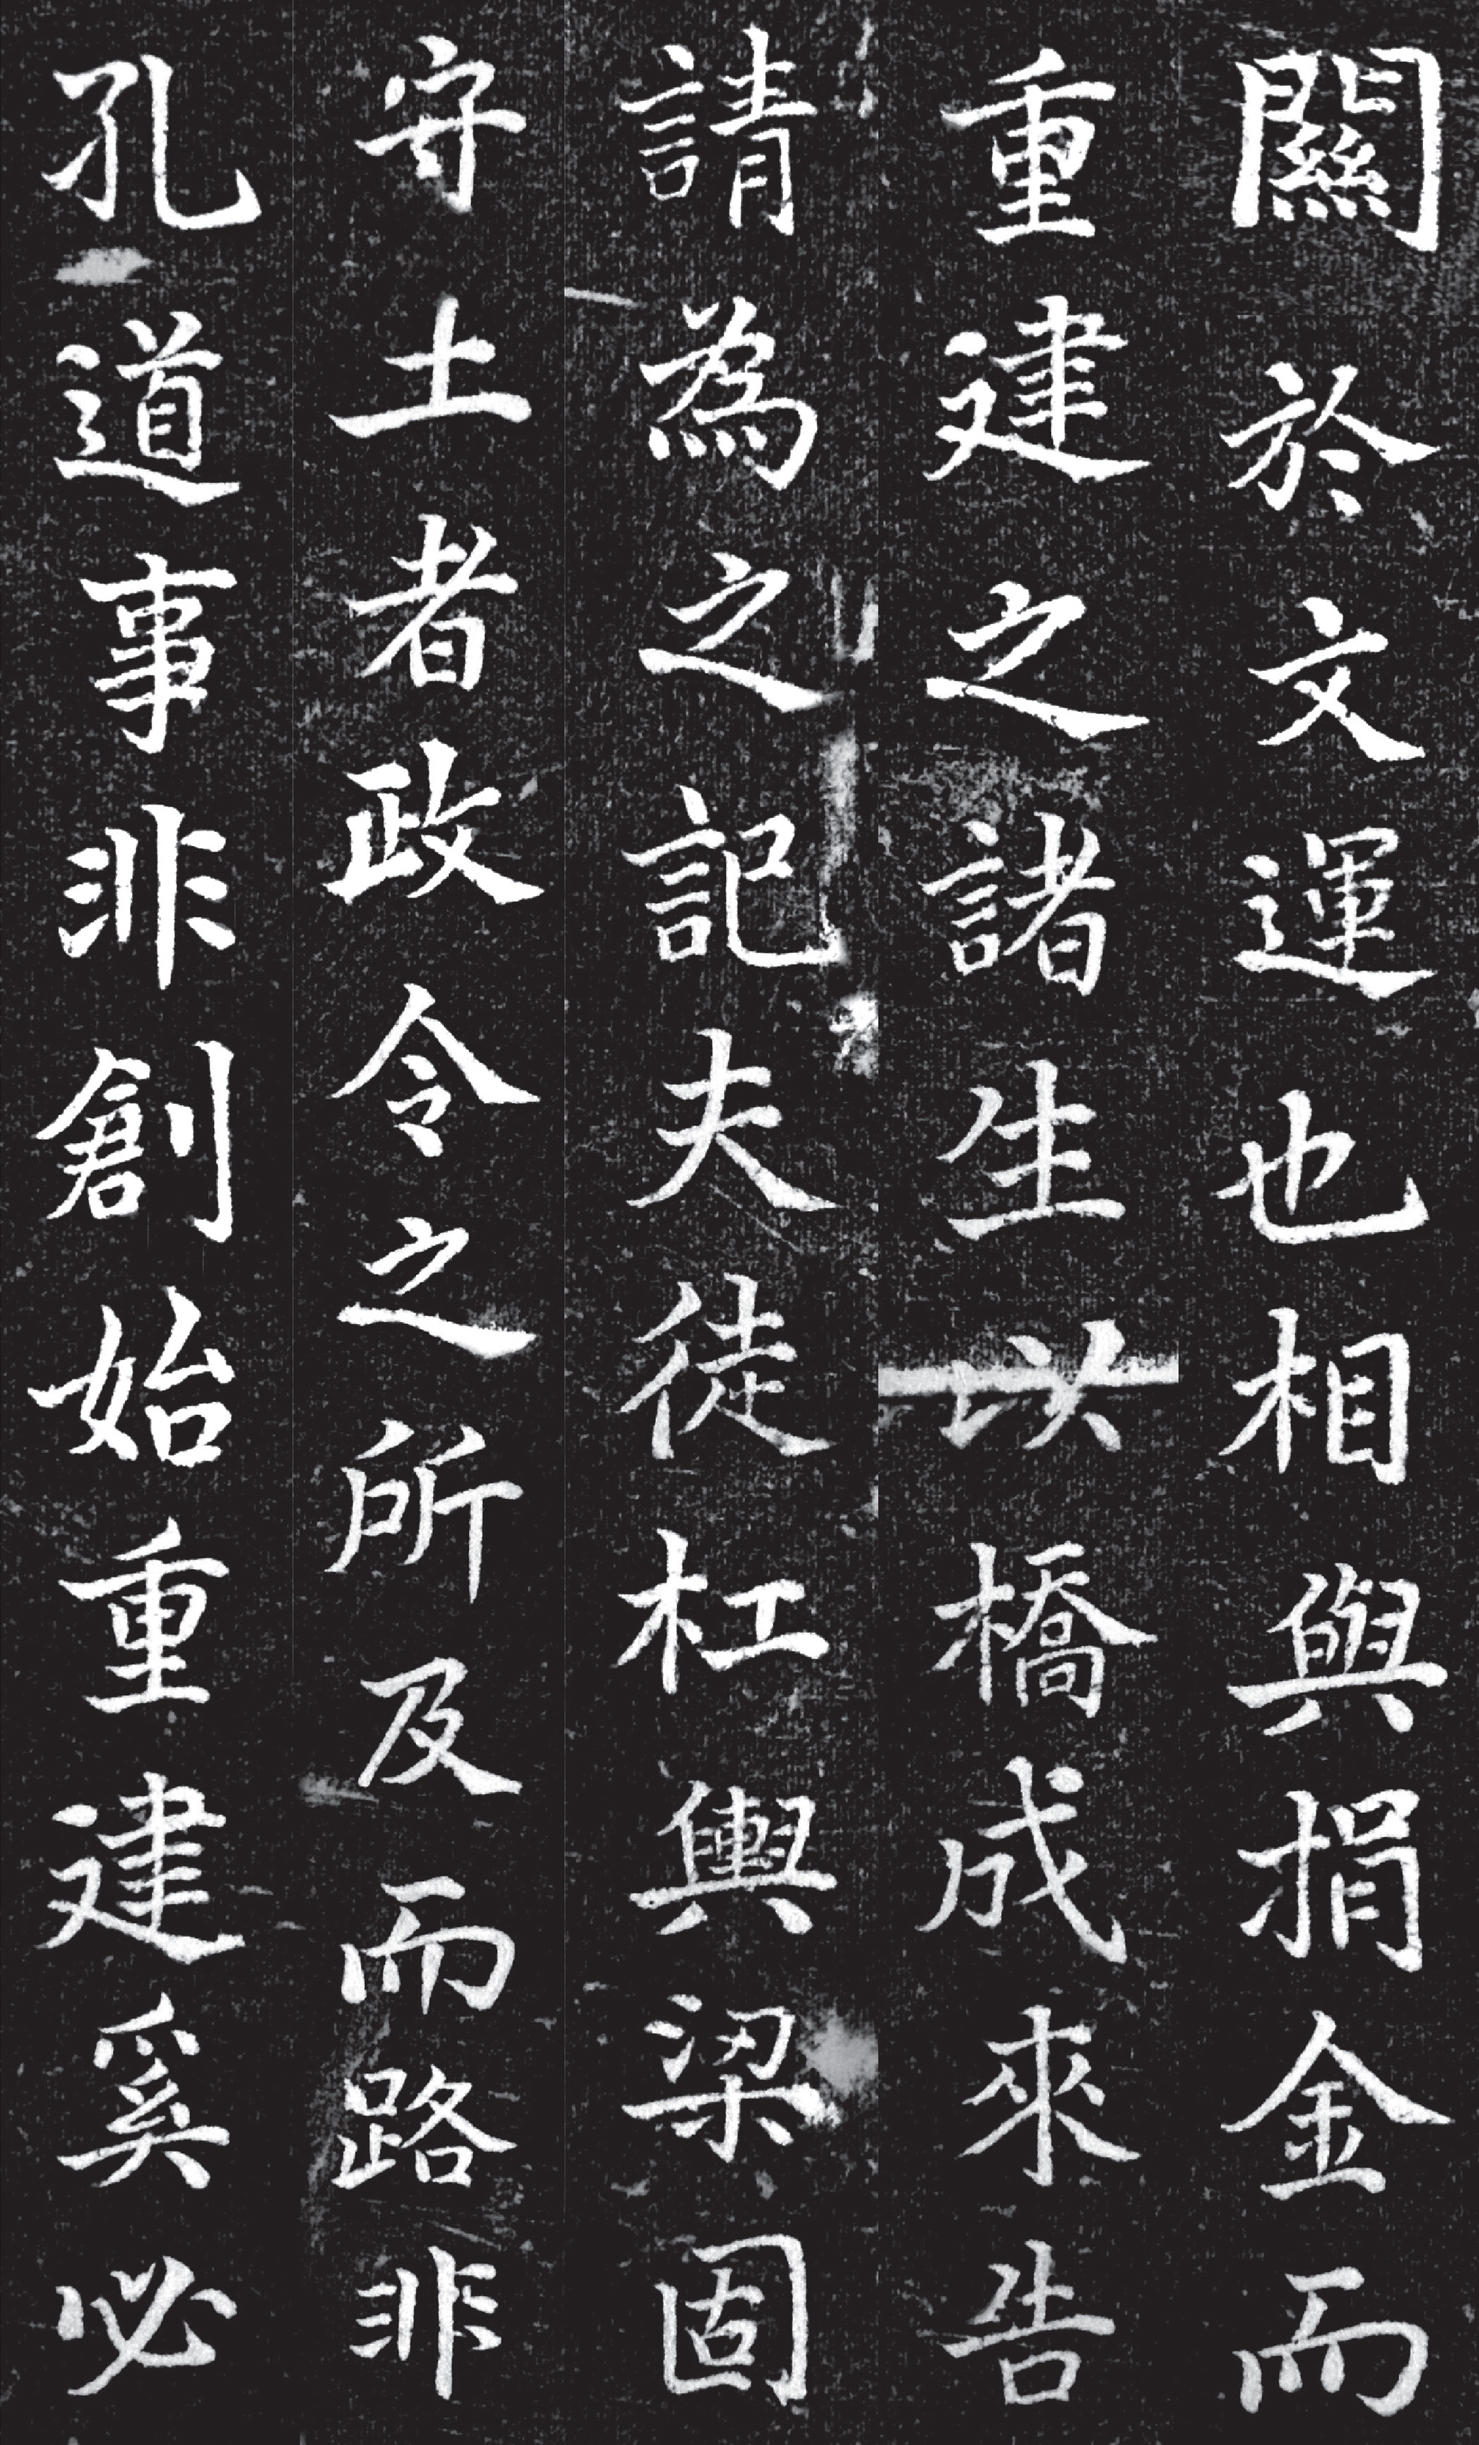 關於文運也相與捐金而
重建之諸生以橋成來告
請為之記夫徒杠輿梁固
守土者政令之所及而路非
孔道事非創始重建奚必